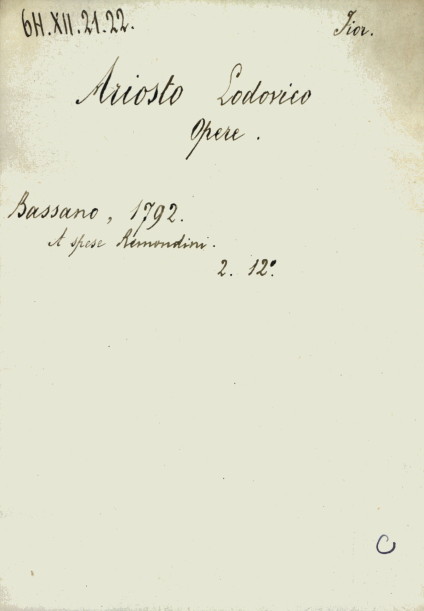 6H.XII.21.22. Fior.
Ariosto Lodovico
Opere.
Bassano, 1792.
A spese Remondini.
2. 12°.
C